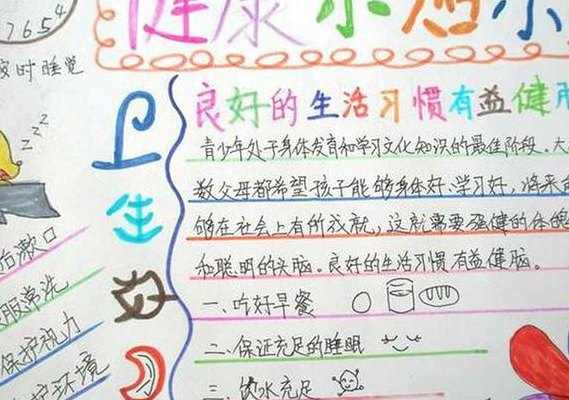 健康
7 6 5 4
按时睡觉
z z z
卫生
良好的生活习惯有益健
青少年处于身体发育和学习文化知识的最佳阶段。大
数父母都希望孩子能够身体好、学习好,将来
够在社会上有所成就,这就需要强健的体魄
和聪明的头脑。良好的生活习惯有益健脑。
一、吃好早餐
二、保证充足的睡眠
三、饮水充足
后漱口
服常洗
保护视力
护环境